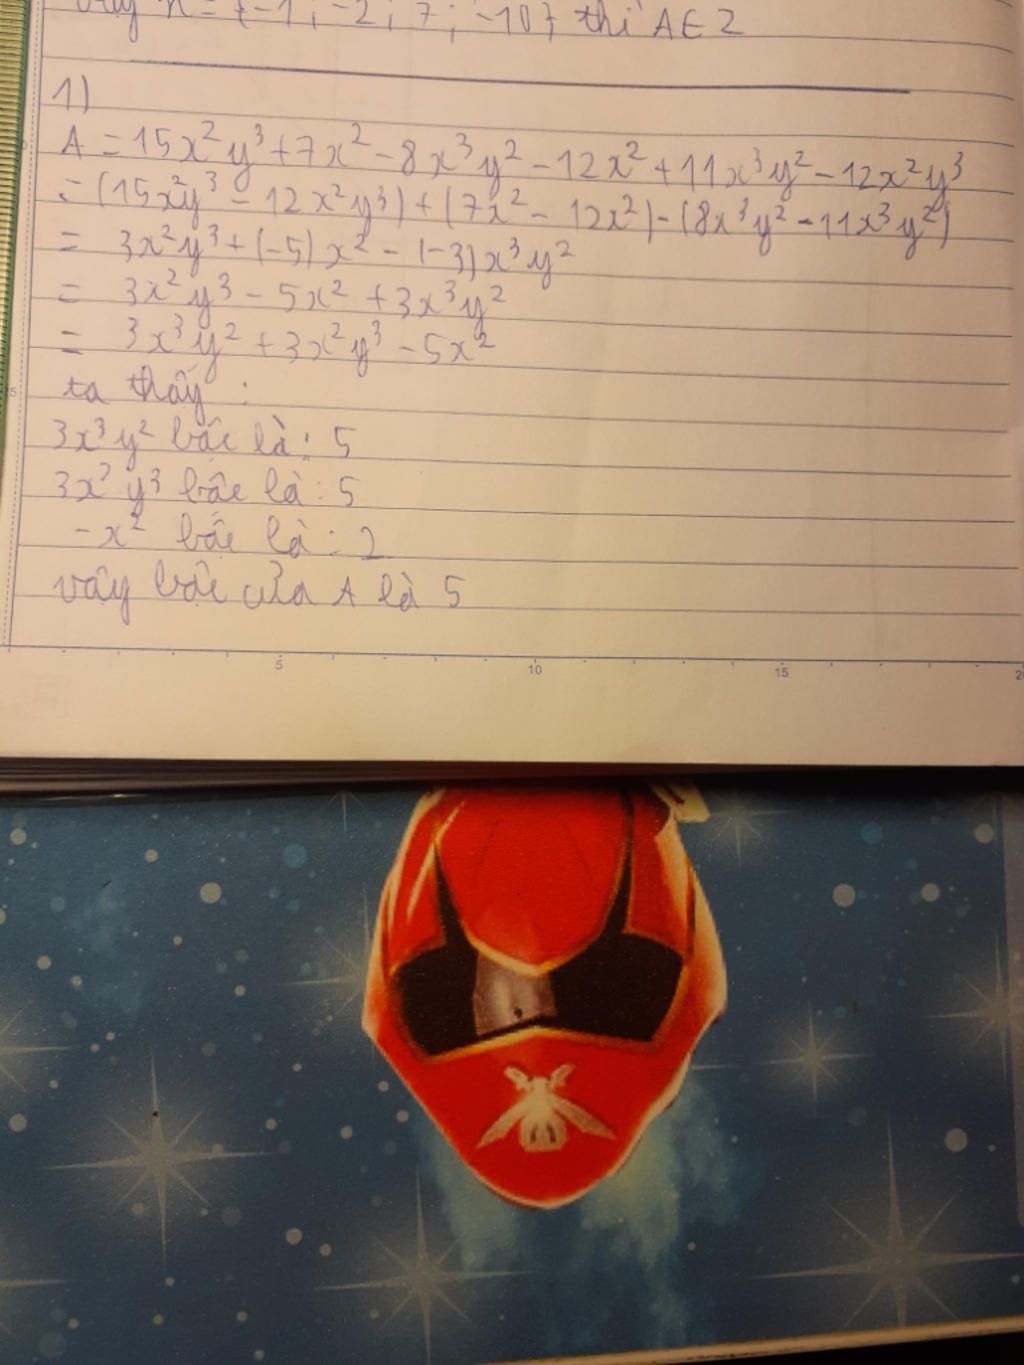 vậy n = {-1; -2; 7; -10} thì A ∈ Z
1)
A = 15x²y³ + 7x² - 8x³y² - 12x² + 11x³y² - 12x²y³
= (15x²y³ - 12x²y³) + (7x² - 12x²) - (8x³y² - 11x³y²)
= 3x²y³ + (-5)x² - (-3)x³y²
= 3x²y³ - 5x² + 3x³y²
= 3x³y² + 3x²y³ - 5x²
ta thấy :
3x³y² bậc là : 5
3x²y³ bậc là : 5
-x² bậc là : 2
vậy bậc của A là 5
5
5 10 15 20